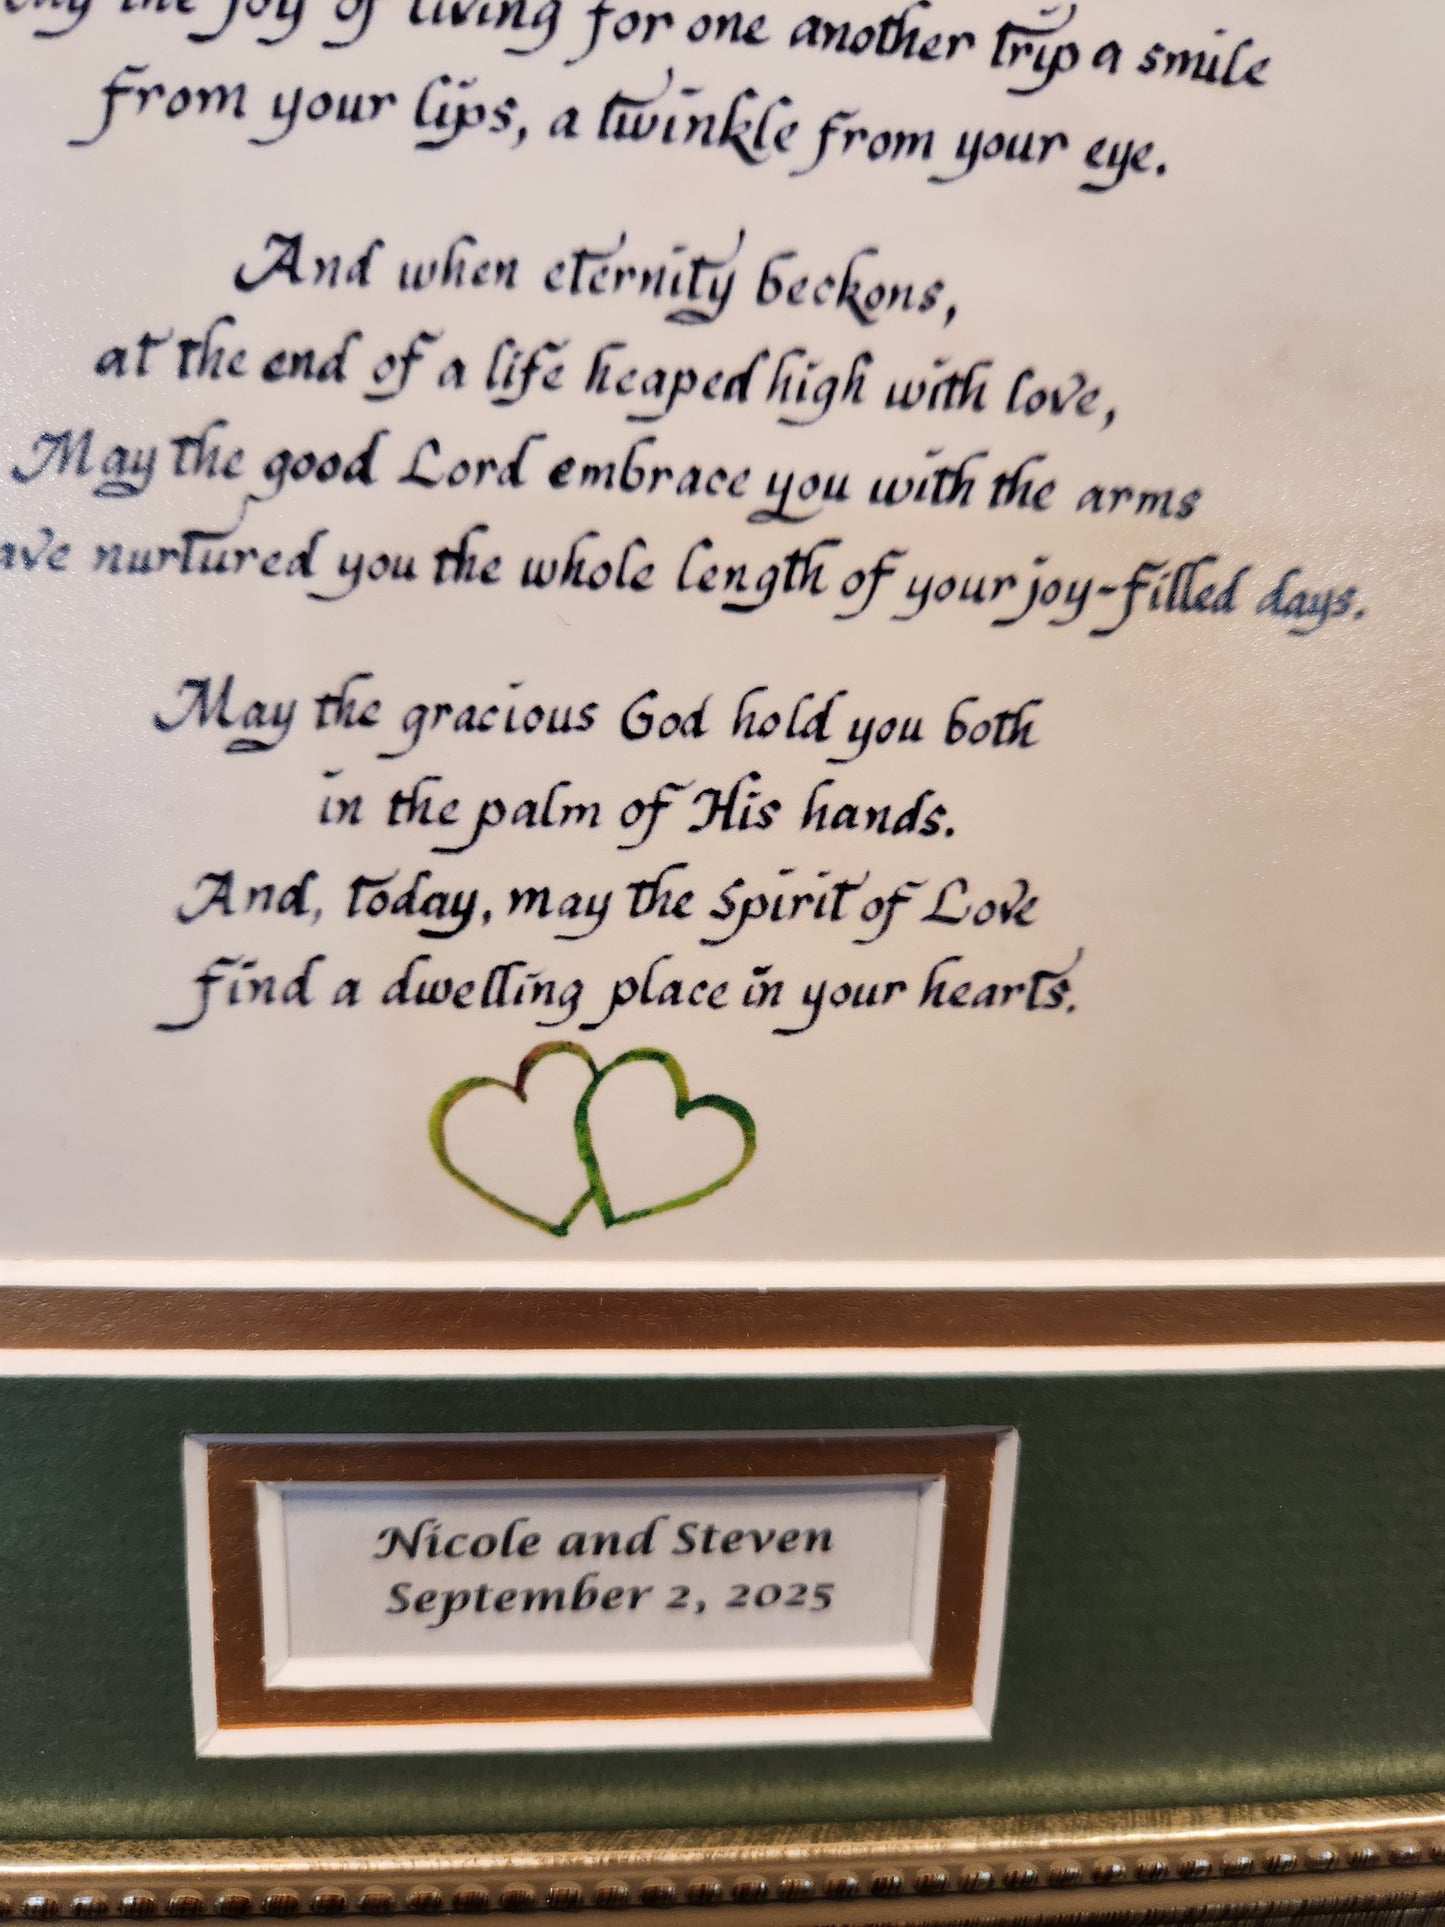 the joy of living for one another trip a smile
from your lips, a twinkle from your eye.
And when eternity beckons,
at the end of a life heaped high with love,
May the good Lord embrace you with the arms
nurtured you the whole length of your joy-filled days.
May the gracious God hold you both
in the palm of His hands.
And, today, may the Spirit of Love
find a dwelling place in your hearts.
Nicole and Steven
September 2, 2025